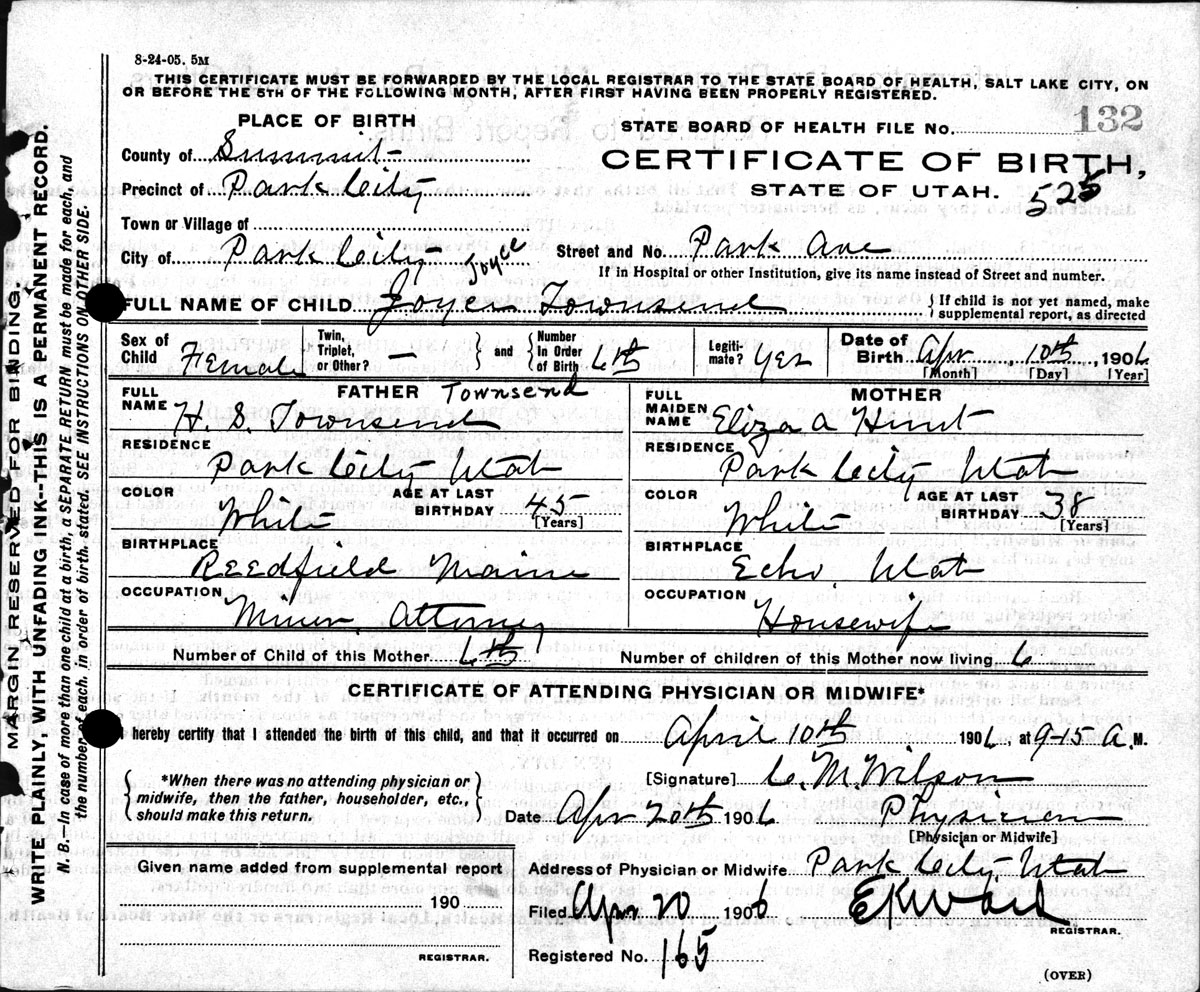 8-24-05. 5M
THIS CERTIFICATE MUST BE FORWARDED BY THE LOCAL REGISTRAR TO THE STATE BOARD OF HEALTH, SALT LAKE CITY, ON
OR BEFORE THE 5TH OF THE FOLLOWING MONTH, AFTER FIRST HAVING BEEN PROPERLY REGISTERED.
PLACE OF BIRTH
STATE BOARD OF HEALTH FILE No. 132
County of Summit
CERTIFICATE OF BIRTH,
Precinct of Park City
STATE OF UTAH. 525
Town or Village of
City of Park City
Street and No. Park Ave
If in Hospital or other Institution, give its name instead of Street and number.
Joyce
FULL NAME OF CHILD Joyce Townsend { If child is not yet named, make supplemental report, as directed
Sex of Child Female
Twin, Triplet, or Other? — } and { Number In Order of Birth 6th
Legitimate? Yes
Date of Birth Apr 10th 1906
[Month] [Day] [Year]
FATHER Townsend
FULL NAME H. S. Townsend
MOTHER
FULL MAIDEN NAME Eliza A Hunt
RESIDENCE Park City Utah
RESIDENCE Park City Utah
COLOR White AGE AT LAST BIRTHDAY 45 [Years]
COLOR White AGE AT LAST BIRTHDAY 38 [Years]
BIRTHPLACE Reedfield Maine
BIRTHPLACE Echo, Utah
OCCUPATION Miner, Attorney
OCCUPATION Housewife
Number of Child of this Mother 6th
Number of children of this Mother now living, 6
CERTIFICATE OF ATTENDING PHYSICIAN OR MIDWIFE*
I hereby certify that I attended the birth of this child, and that it occurred on April 10th 1906, at 9-15 A. M.
{ *When there was no attending physician or midwife, then the father, householder, etc., should make this return. }
[Signature] C. M. Wilson
Date Apr 20th 1906 Physician
[Physician or Midwife]
Given name added from supplemental report
190
REGISTRAR.
Address of Physician or Midwife Park City, Utah
Filed Apr 20 1906 E K Ward
REGISTRAR.
Registered No. 165
(OVER)
MARGIN RESERVED FOR BINDING.
WRITE PLAINLY, WITH UNFADING INK--THIS IS A PERMANENT RECORD.
N. B.--In case of more than one child at a birth, a SEPARATE RETURN must be made for each, and
the number of each, in order of birth, stated. SEE INSTRUCTIONS ON OTHER SIDE.